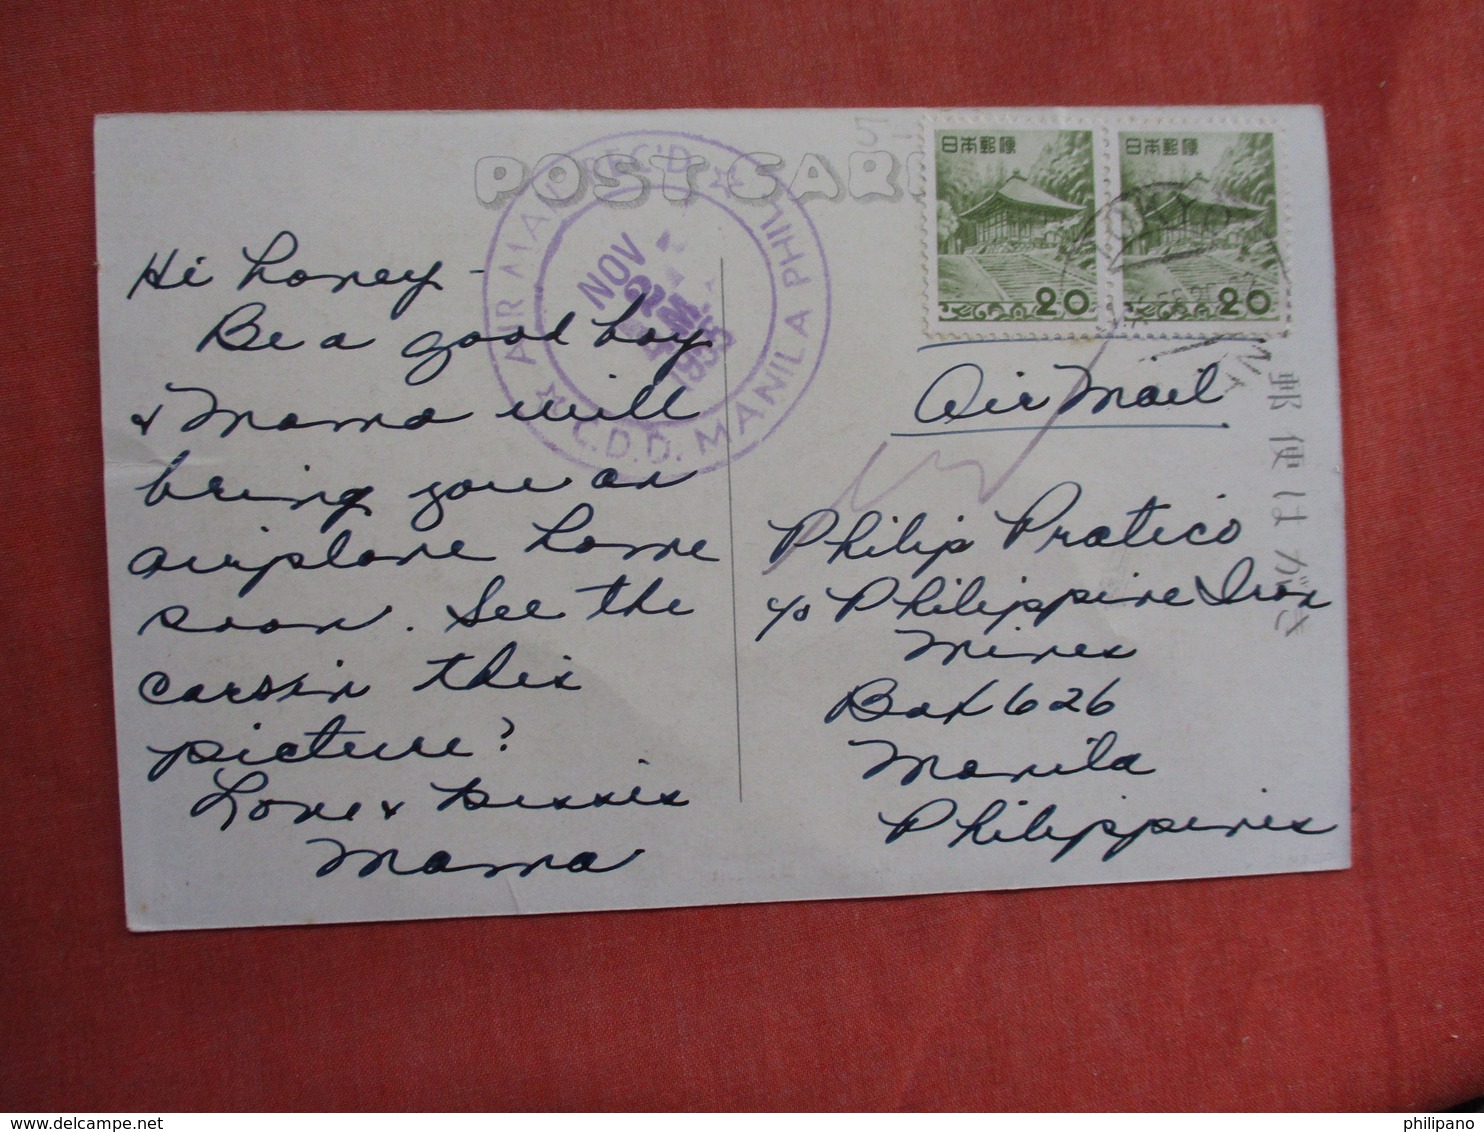 POST CARD
AIR MAIL REC'D
C.D.D. MANILA PHIL
NOV
1955
日本郵便
20
日本郵便
20
TOKYO
郵便はがき
Hi honey -
Be a good boy
& Mama will
bring you an
airplane home
soon. See the
cars in this
picture?
Love & kisses
Mama
Air Mail
Philip Pratico
c/o Philippine Iron
Mines
Box 626
Manila
Philippines
philipano